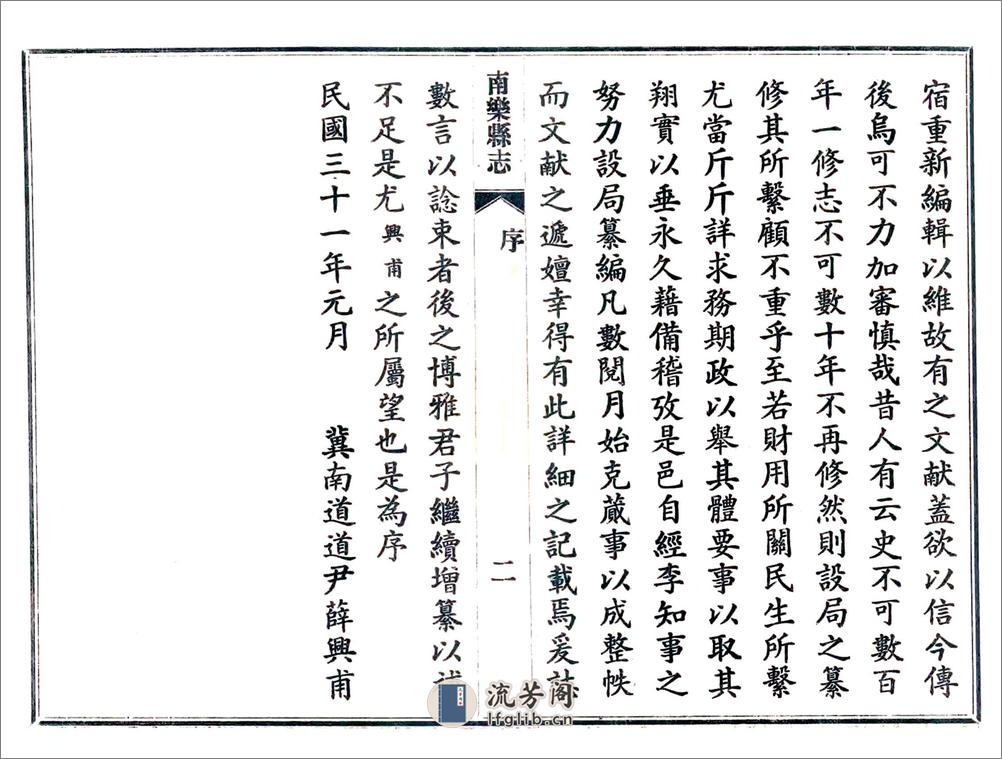 宿重新編輯以維故有之文献蓋欲以信今傳
後烏可不力加審慎哉昔人有云史不可數百
年一修志不可數十年不再修然則設局之纂
修其所繫顧不重乎至若財用所關民生所繫
尤當斤斤詳求務期政以舉其體要事以取其
翔實以垂永久藉備稽攷是邑自經李知事之
努力設局纂編凡數閱月始克蕆事以成整帙
而文献之遞嬗幸得有此詳細之記載焉爰誌
南樂縣志
序
二
數言以諗来者後之博雅君子繼續增纂以
不足是尤興甫之所屬望也是為序
民國三十一年元月 冀南道道尹薛興甫
流芳阁
lfglib.cn